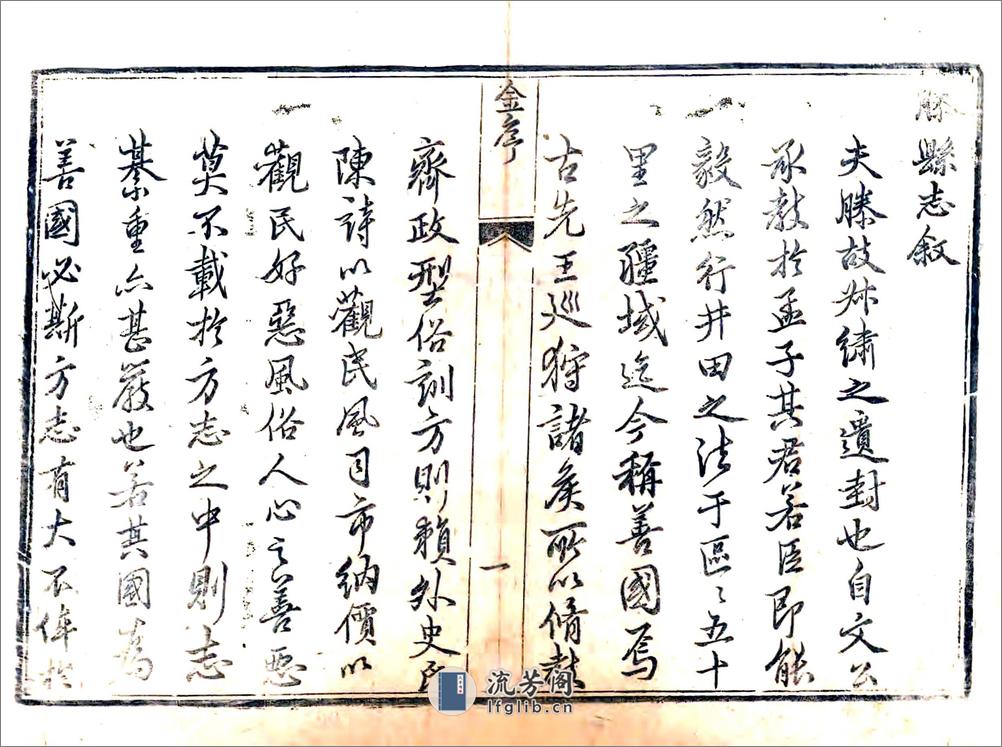 滕縣志敘
夫滕故叔繡之遺封也自文公
承教於孟子其君若臣即能
毅然行井田之法于區〻五十
里之疆域迄今稱善國焉
古先王巡狩諸侯所以脩
金序
一
齊政型俗訓方則賴外史臣
陳詩以觀民風司市納價以
觀民好惡風俗人心之善惡
莫不載於方志之中則志
綦重亦甚嚴也若其國為
善國必斯方志有大不侔於
流芳閣
lfglib.cn